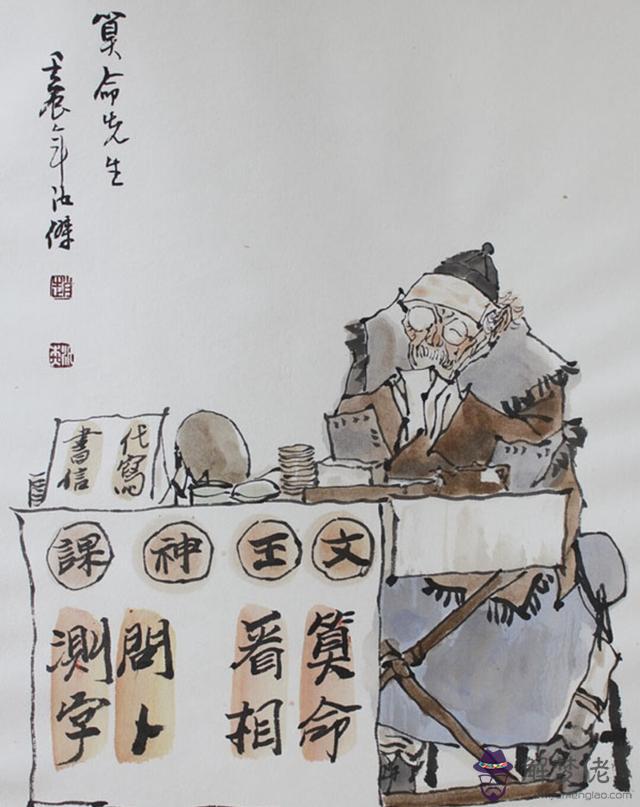 算命先生
壬辰年汝傑
代寫
書信
文王神課
算命
看相
問卜
測字
解梦佬